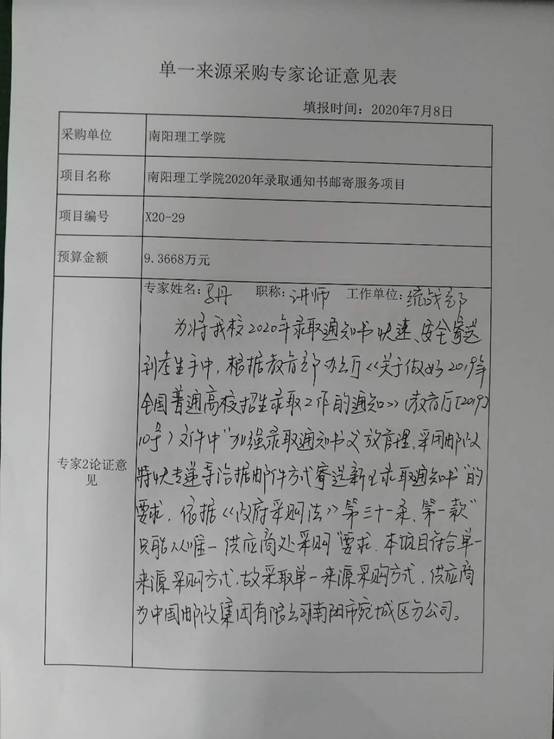 单一来源采购专家论证意见表
填报时间：2020年7月8日
采购单位 南阳理工学院
项目名称 南阳理工学院2020年录取通知书邮寄服务项目
项目编号 X20-29
预算金额 9.3668万元
专家姓名：马丹 职称：讲师 工作单位：统战部
专家2论证意见
为将我校2020年录取通知书快速、安全寄送
到考生手中，根据教育部办公厅《关于做好2019年
全国普通高校招生录取工作的通知》（教育厅[2019]
10号）文件中“加强录取通知书发放管理，采用邮政
特快专递等给据邮件方式寄送新生录取通知书”的
要求，依据《政府采购法》第三十一条，第一款“
只能从唯一供应商处采购”要求，本项目符合单一
来源采购方式，故采取单一来源采购方式，供应商
为中国邮政集团有限公司南阳市宛城区分公司。